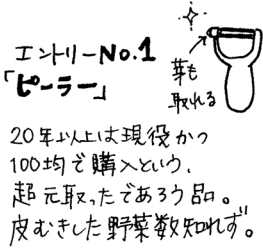 エントリーNo.1
「ピーラー」
芽も
取れる
20年以上は現役かつ
100均で購入という、
超元取ったであろう品。
皮むきした野菜数知れず。